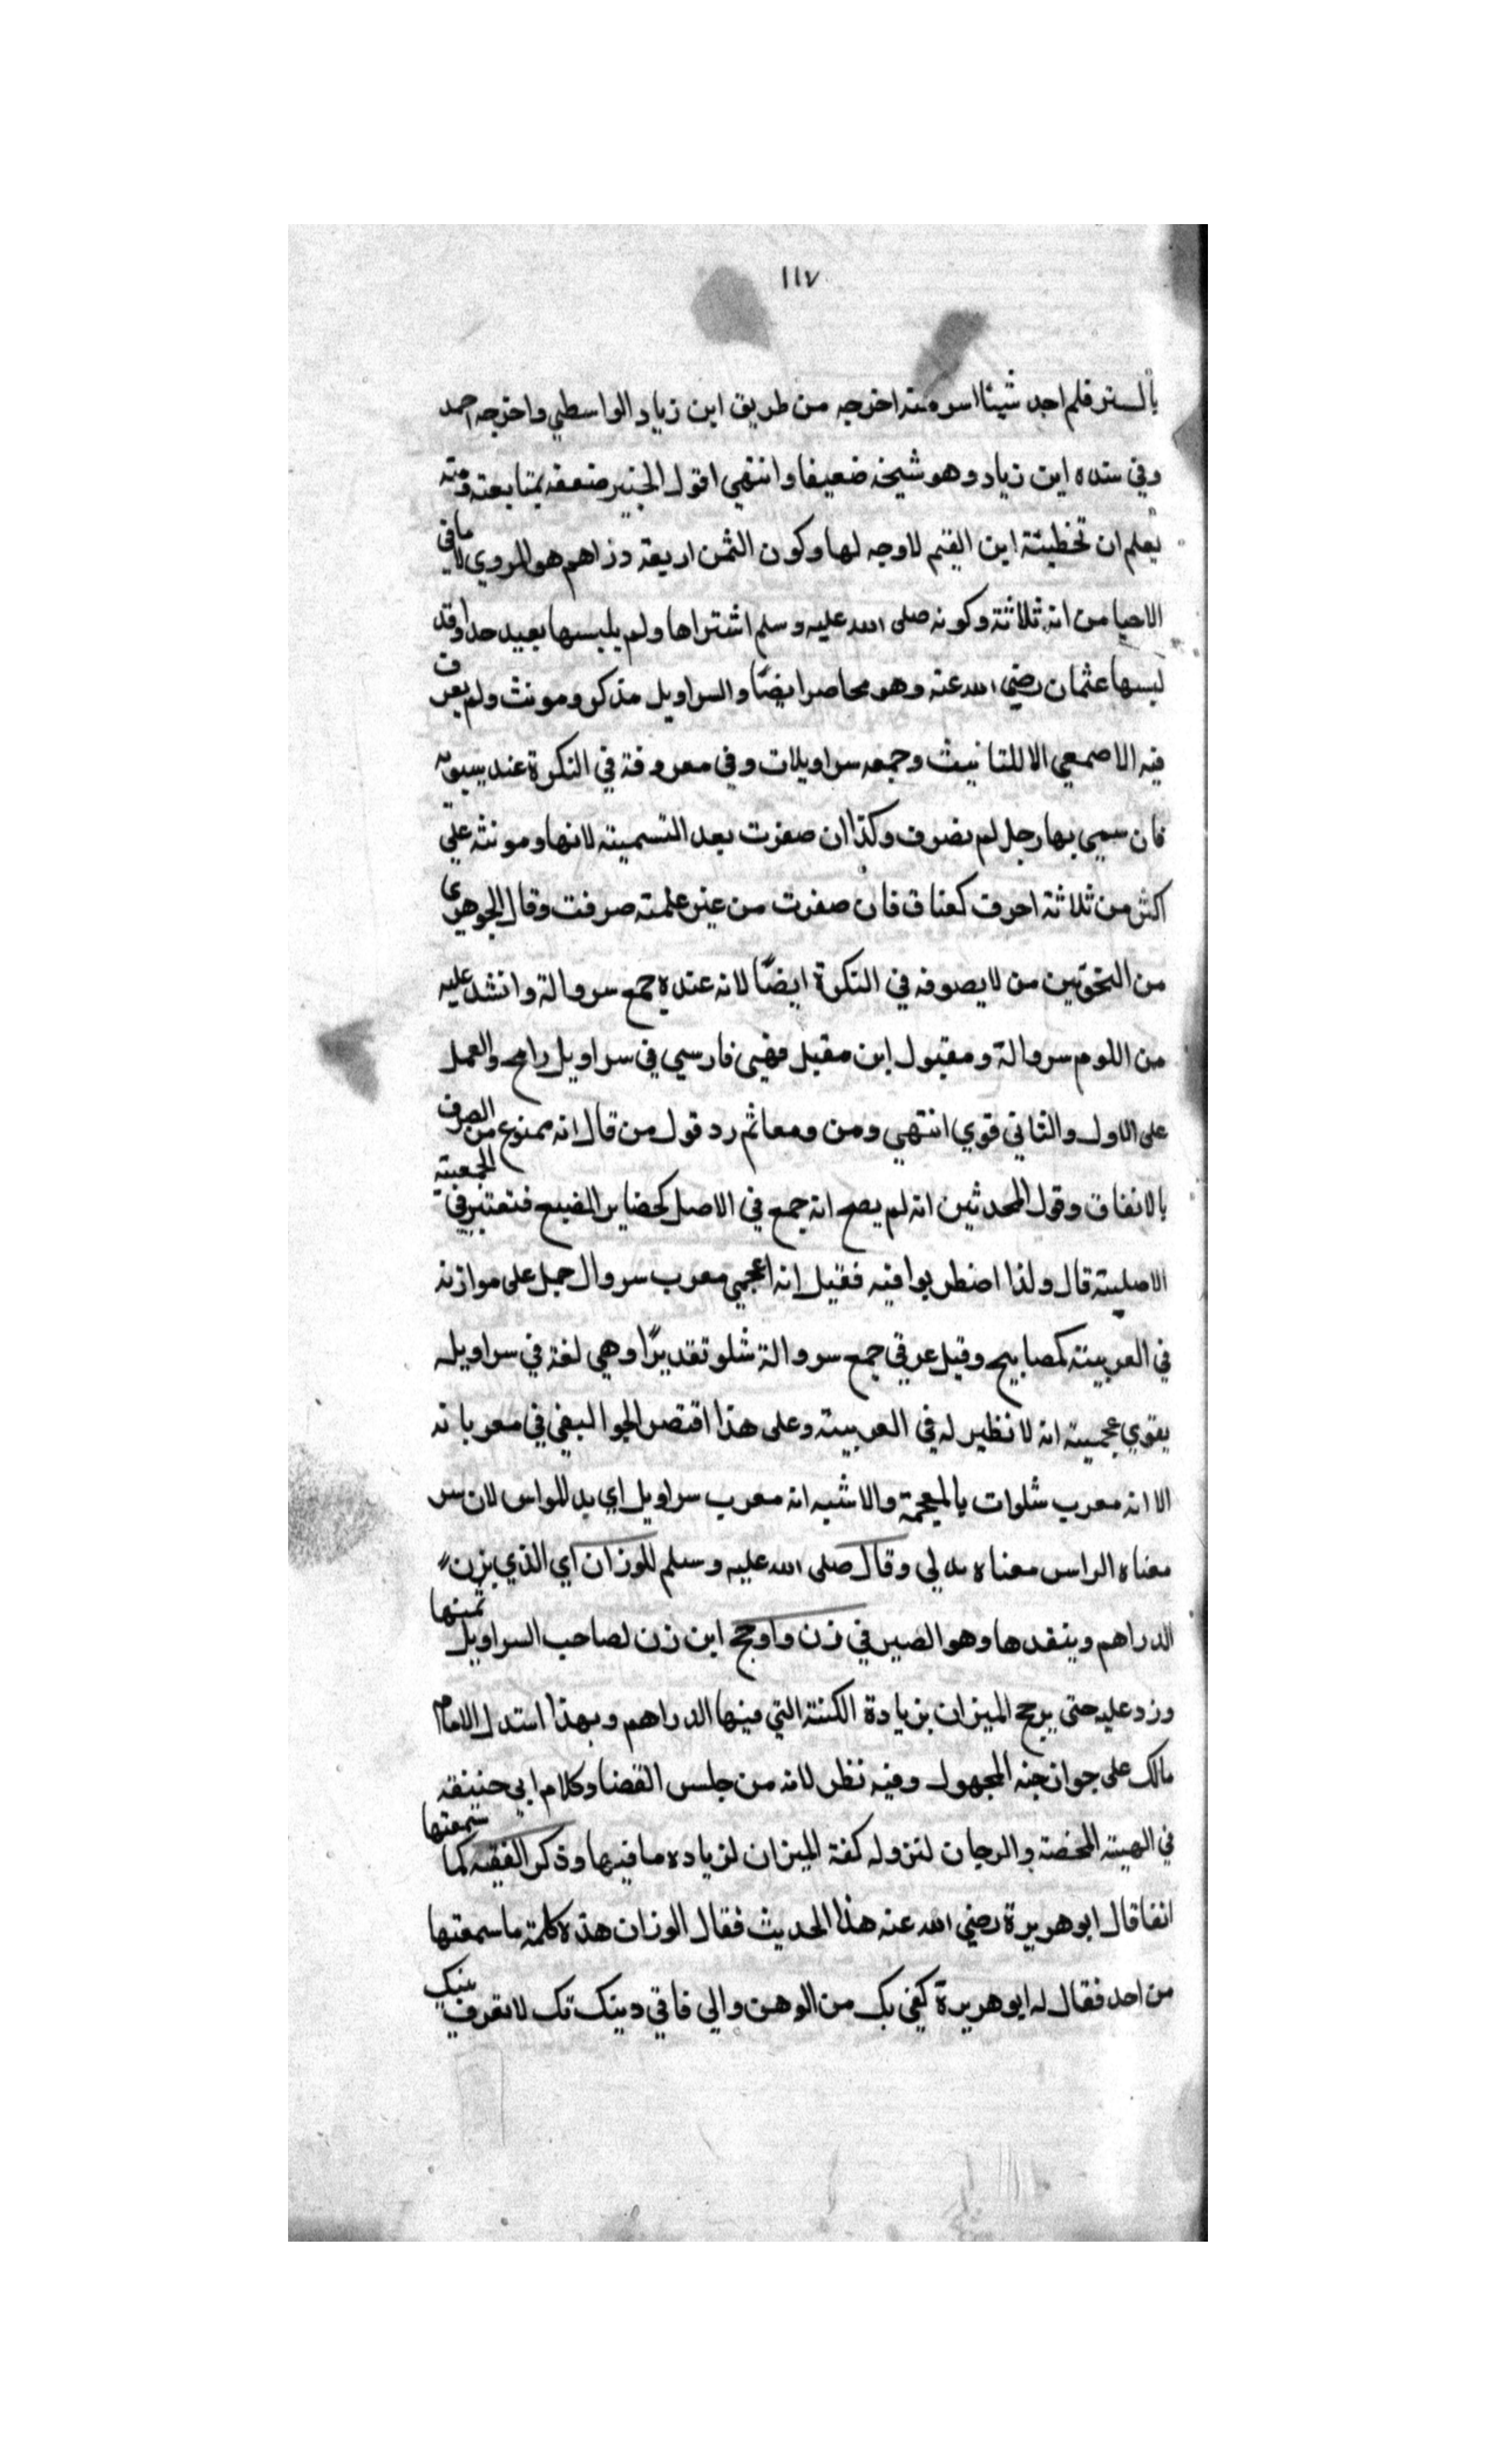 ١١٧
بالستر فلم اجد شيئا استر منه اخرجه من طريق ابن زياد الواسطي واخرجه احمد
وفي سنده ابن زياد وهو شيخه ضعيفا وانتهى اقول الجبير ضعفه بمتابعته ومنه
يعلم ان تخطيئة ابن القيم لاوجه لها وكون الثمن اربعة دراهم هو المروي لا ما في
الاحيا من انه ثلاثة وكونه صلى الله عليه وسلم اشتراها ولم يلبسها بعيد جدا وقد
لبسها عثمان رضي الله عنه وهو محاصر ايضًا والسراويل مذكر ومونث ولم يعرف
فيه الاصمعي الا للتانيث وجمعه سراويلات وفي معروفة في النكرة عند سيبويه
فان سمي بها رجل لم يصرف وكذا ان صغرت بعد التسمية لانها ومونثة على
اكثر من ثلاثة احرف كعناق فان صغرت من غير علمته صرفت وقال الجوهري
من النحويين من لا يصوفه في النكرة ايضًا لانه عنده جمع سروالة وانشد عليه
من اللوم سروالة ومقبول ابن مقبل فهي فارسي في سراويل رامح والعمل
على الاول والثاني قوي انتهى ومن ومعاثم رد قول من قال انه ممنوع من الصرف
بالاتفاق وقول المحدثين انه لم يصح انه جمع في الاصل كحضاير الضبع فتعتبر في الجمعية
الاصلية قال ولذا اضطربوا فيه فقيل انه اعجمي معرب سروال حمل على موازنه
في العربية كمصابيح وقيل عرقي جمع سروالة شلو تقديرًا وهي لغة في سراويله
يقوي عجمية انه لا نظير له في العربية وعلى هذا اقتصر الجواليقي في معرباته
الا انه معرب شلوات بالمعجمة والاشبه انه معرب سراويل اي بد للواس لان سر
معناه الراس معناه يد لي وقال صلى الله عليه وسلم للوزان اي الذي يزن
الدراهم وينقدها وهو الصير في زن واوجح ابن زن لصاحب السراويل ثمنها
وزد عليه حتى يرجح الميزان بزيادة الكتة التي فيها الدراهم وبهذا استدل الامام
مالك على جواز جنه المجهول وفيه نظر لانه من جلس القضا وكلام ابي حنيفة
في الهيته المحضة والرجان لنزوله كفة الميزان لزياده ما فيها وذكر الفقيه كما سمعتها
انفا قال ابو هريرة رضي الله عنه هذا الحديث فقال الوزان هذه كلمة ما سمعتها
من احد فقال له ابو هريرة كفى بك من الوهن والي فاتي دينك تك لا تعرف بنيك